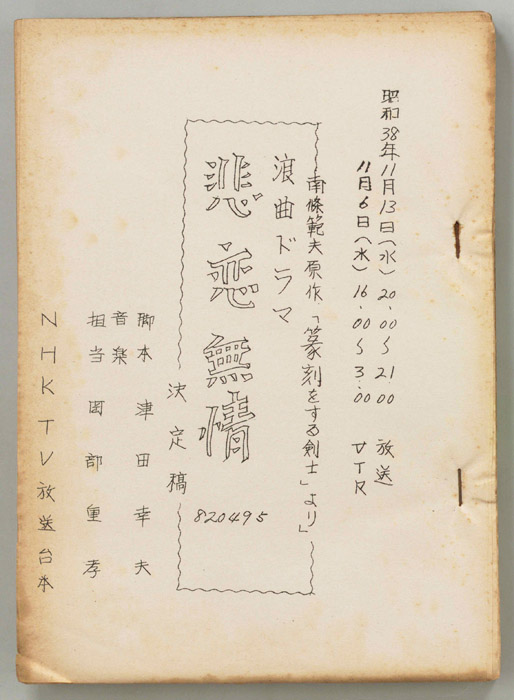 昭和38年11月13日(水) 20.00〜21.00 放送
11月6日(水) 16.00〜3.00 VTR
南條範夫原作「篆刻をする剣士」より」
浪曲ドラマ
悲恋無情
決定稿
820495
脚本 津田幸夫
音楽
担当 岡部重孝
NHKTV放送台本